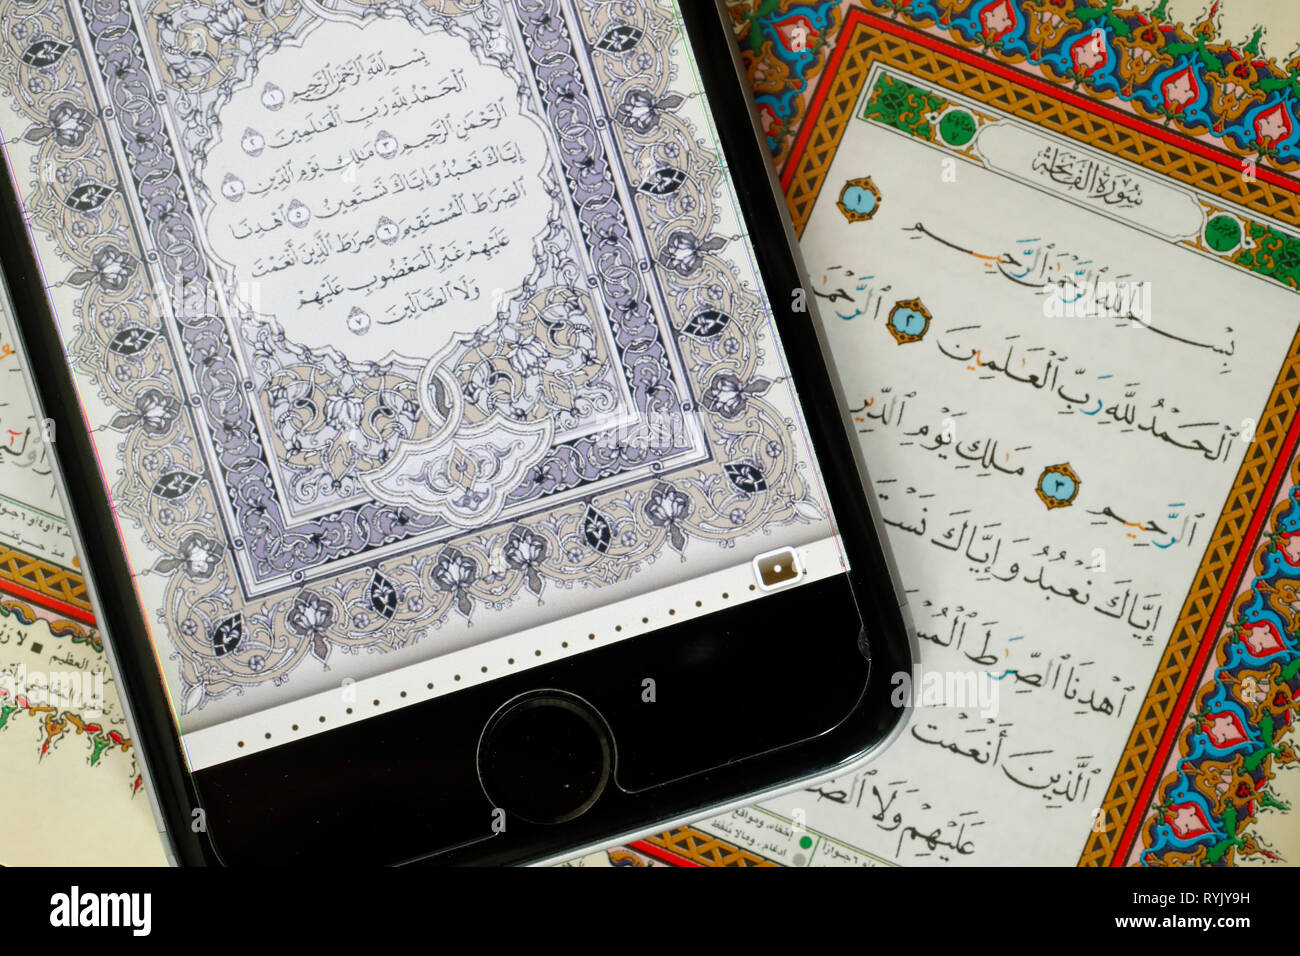 بِسْمِ ٱللَّهِ ٱلرَّحْمَٰنِ ٱلرَّحِيمِ ١
ٱلْحَمْدُ لِلَّهِ رَبِّ ٱلْعَٰلَمِينَ ٢
ٱلرَّحْمَٰنِ ٱلرَّحِيمِ ٣ مَٰلِكِ يَوْمِ ٱلدِّينِ ٤
إِيَّاكَ نَعْبُدُ وَإِيَّاكَ نَسْتَعِينُ ٥ ٱهْدِنَا
ٱلصِّرَٰطَ ٱلْمُسْتَقِيمَ ٦ صِرَٰطَ ٱلَّذِينَ أَنْعَمْتَ
عَلَيْهِمْ غَيْرِ ٱلْمَغْضُوبِ عَلَيْهِمْ
وَلَا ٱلضَّآلِّينَ ٧
سُورَةُ ٱلْفَاتِحَةِ
بِسْمِ ٱللَّهِ ٱلرَّحْمَٰنِ ٱلرَّحِيمِ ١
ٱلْحَمْدُ لِلَّهِ رَبِّ ٱلْعَٰلَمِينَ ٢ ٱلرَّحْمَٰ
ٱلرَّحِيمِ ٣ مَٰلِكِ يَوْمِ ٱلدِّينِ
إِيَّاكَ نَعْبُدُ وَإِيَّاكَ نَسْتَ
ٱهْدِنَا ٱلصِّرَٰطَ ٱلْمُسْ
ٱلَّذِينَ أَنْعَمْتَ
عَلَيْهِمْ وَلَا ٱلضَّ
إخفاء، ومواقع
ادغام، ومالا يُلفظ
alamy
alamy stock photo
RYJY9H
www.alamy.com